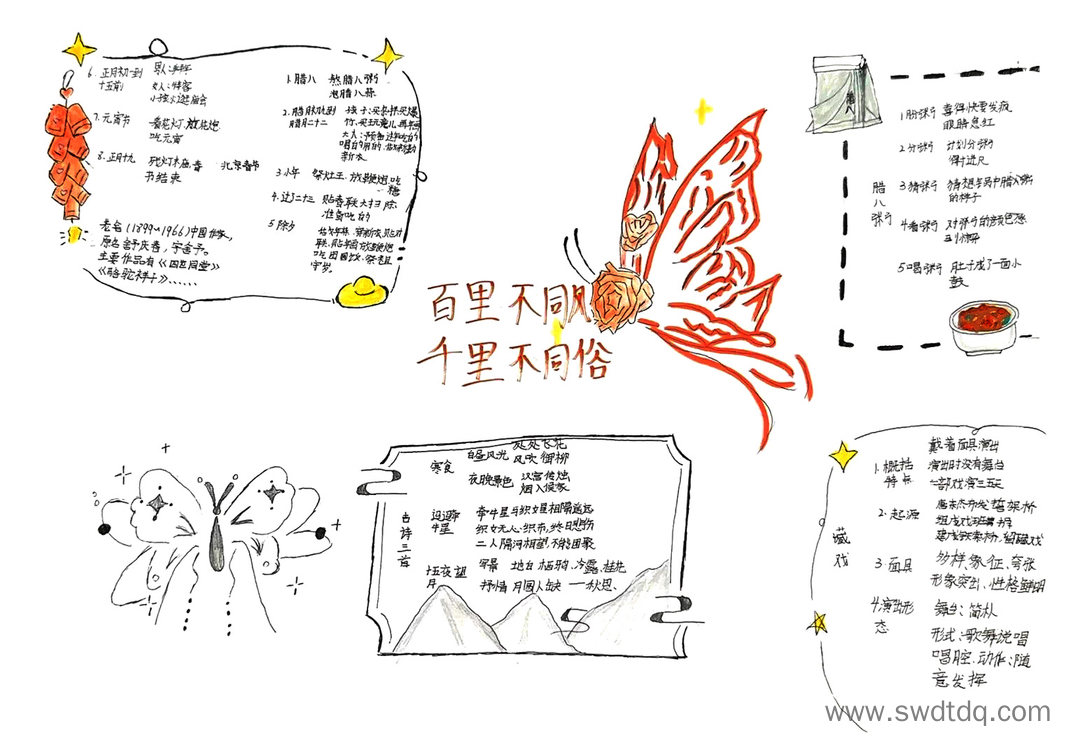 百里不同风
千里不同俗
1.腊八 熬腊八粥
泡腊八蒜
2.腊月初九到
腊月二十二
孩子:买杂拌买爆
竹、买玩意儿
大人:预备过年吃的
3.小年 祭灶王.放鞭炮.吃
糖
4.过二十三 贴春联大扫除
准备吃的
5除夕
吃团圆饭.祭祖
守岁.
6.正月初一到
十五前
男人:拜年
女人:待客
小孩:逛庙会
7.元宵节
看花灯.放花炮
吃元宵
8.正月十九
北京春节
书结束
老舍(1899~1966)中国作家,
原名舒庆春,字舍予。
主要作品有《四世同堂》
《骆驼祥子》......
腊八
腊
八
粥
1.盼粥 喜得快要发疯
眼睛急红
2分粥 计划分粥
得寸进尺
3.猜粥 猜想锅中腊八粥
的样子
4.看粥 对粥的颜色感
到惊异
5喝粥 肚子成了一面小
鼓
古诗三首
寒食
白昼风光
处处飞花
风吹御柳
夜晚景色
汉宫传烛
烟入侯家
迢迢牵
牛星
牵牛星与织女星相隔遥远
织女无心织布,终日悲伤
二人隔河相望,不能团聚
十五夜望
月
写景 地白 栖鸦、冷露、桂花
抒情 月圆人缺——秋思.
藏
戏
1.概括
特点
戴着面具演出
演出时没有舞台
一部戏演三五天
2.起源
唐东杰布发誓架桥
组成戏班
3.面具
多样.象征、夸张
形象突出、性格鲜明
4.演出形
态
舞台:简朴
形式:歌舞说唱
唱腔.动作:随
意发挥
www.swdtdq.com